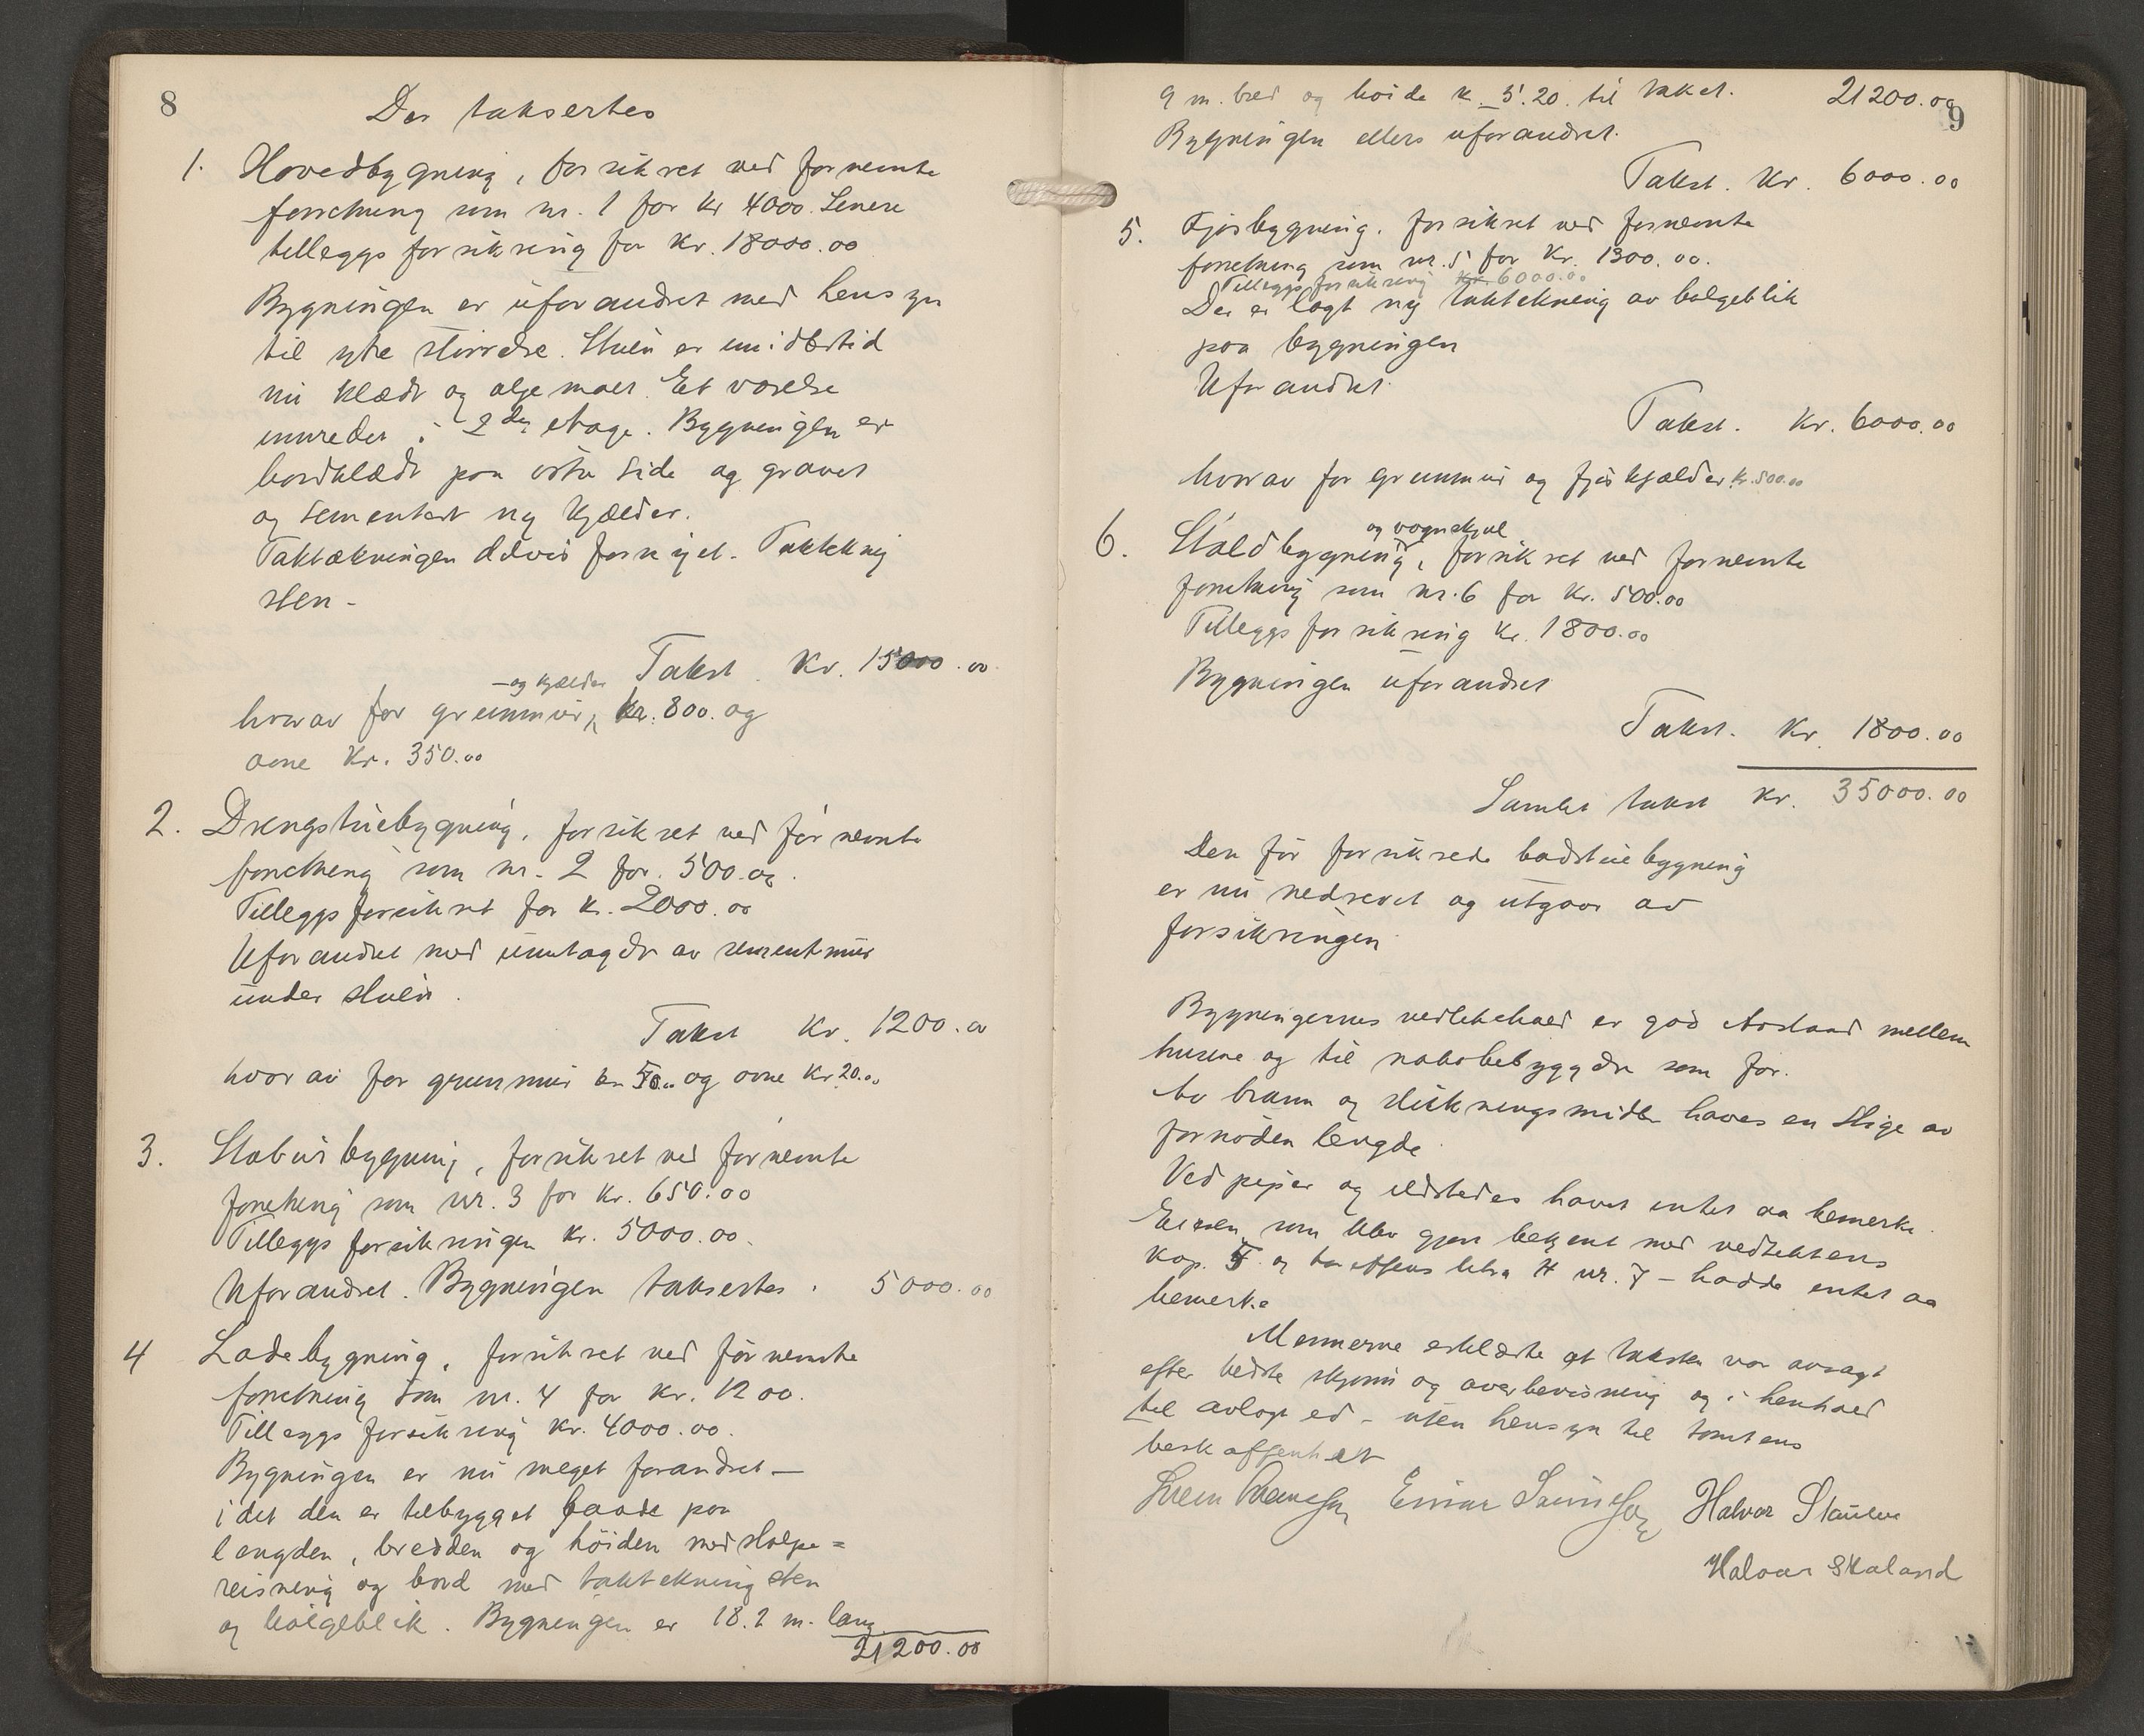 8
Der taksertes
1. Hovedbygning, forsikret ved fornemte
forretning som nr. 1 for kr 4000. Senere
tilleggsforsikring for kr. 18000.00
Bygningen er uforandret med hensyn
til ytre størrelse. Stuen er imidlertid
nu klædt og oljemalt. Et værelse
innredet i 2den etage. Bygningen er
bordklædt paa østre side og gravet
og sementert ny kjælder.
Taktækningen delvis fornyet. Taktekning
sten -
Takst. Kr. 15000.00
og kjælder
hvorav for grunnmur, kr. 800. og
ovne Kr. 350.00
2. Drengstuebygning, forsikret ved fornemte
forretning som nr. 2 for. 500.00.
Tilleggsforsikret for k. 2000.00
Uforandret med unntagelse av sementmur
under stuen.
Takst Kr. 1200.00
hvorav for grunnmur kr. 50.00 og ovne kr 20.00
3. Stabursbygning, forsikret ved fornemte
forretning som nr. 3 for kr. 650.00
Tilleggsforsikringen kr. 5000.00.
Uforandret. Bygningen taksertes. 5000.00
4 Ladebygning, forsikret ved fornemte
forretning som nr. 4 for kr. 1200.
Tilleggsforsikring kr. 4000.00.
Bygningen er nu meget forandret —
idet den er tilbygget baade paa
lengden, bredden og høiden med stolpe=
reisning og bord med taktekning sten
og bølgeblik. Bygningen er 18.2 m. lang
21200.00
9
9 m. bred og høide k. 5.20 til taket. 21200.00
Bygningen ellers uforandret.
Takst. Kr. 6000.00
5. Fjøsbygning. forsikret ved fornemte
forretning som nr. 5 for Kr. 1300.00.
Tilleggsforsikring Kr. 6000.00
Der er lagt ny taktekning av bølgeblik
paa bygningen
Uforandret.
Takst. Kr. 6000.00
hvorav for grunnmur og fjøskjælder kr. 500.00
og vognskjul
6. Staldbygning, forsikret ved fornemte
forretning som nr. 6 for Kr. 500.00
Tilleggsforsikring Kr. 1800.00
Bygningen uforandret
Takst. Kr. 1800.00
Samlet takst kr. 35000.00
Den før forsikrede badstuebygning
er nu nedrevet og utgaar av
forsikringen
Bygningernes vedlikehold er god Avstand mellem
husene og til nabobebyggelse som før.
Av brann og slukningsmidler haves en stige av
fornøden lengde.
Ved piper og ildsteder havet intet aa bemerke.
Eieren, som blev gjort bekjent med vedtektens
kap. 5 og tariffens litra H nr. 7 – hadde intet aa
bemerke
Mennerne erklærte at taksten var avsagt
efter bedste skjønn og overbevisning og i henhold
til avlagt ed – uten hensyn til tomtens
beskaffenhet
Halvor Staulen
Halvor Skaland